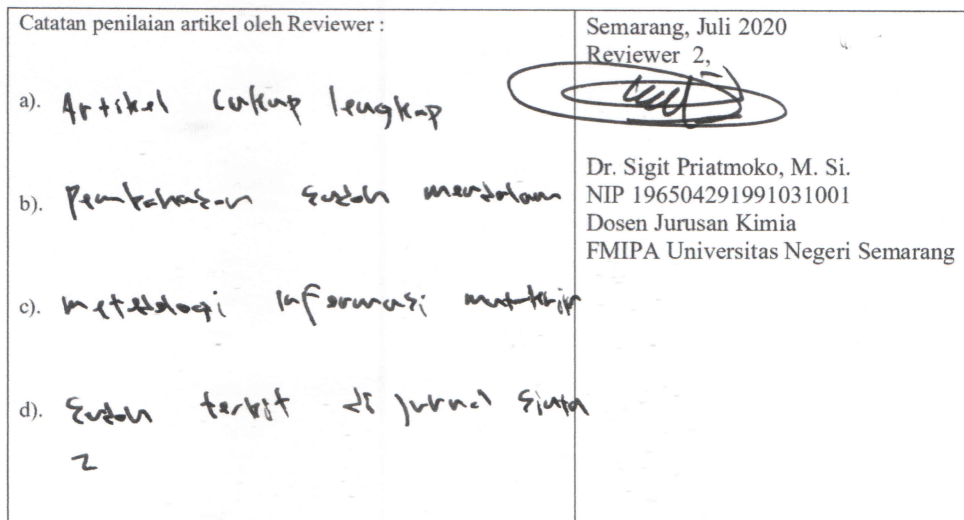 Catatan penilaian artikel oleh Reviewer :
a). Artikel cukup lengkap
b). Pembahasan sudah mendalam
c). metodologi informasi mutakhir
d). Sudah terbit di jurnal Sinta
2
Semarang, Juli 2020
Reviewer 2,
Dr. Sigit Priatmoko, M. Si.
NIP 196504291991031001
Dosen Jurusan Kimia
FMIPA Universitas Negeri Semarang